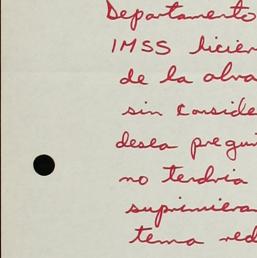 Departamento
IMSS licien
de la obra
sin conside
desea pregun
no tendria
suprimiera
tema red